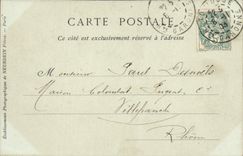 CARTE POSTALE
Ce côté est exclusivement réservé à l'adresse
Monsieur Paul
Maison Colombat
Villefranche
Rhône
Etablissements Photographiques de NEURDEIN Frères. - Paris